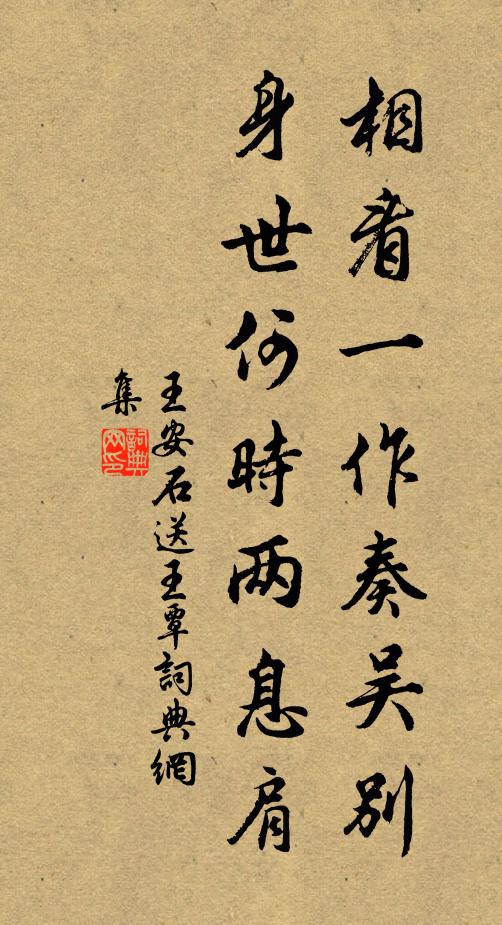 相看一作奏吴别
身世何時两息肩
王安石送王覃詞典網
集
詞典
网印